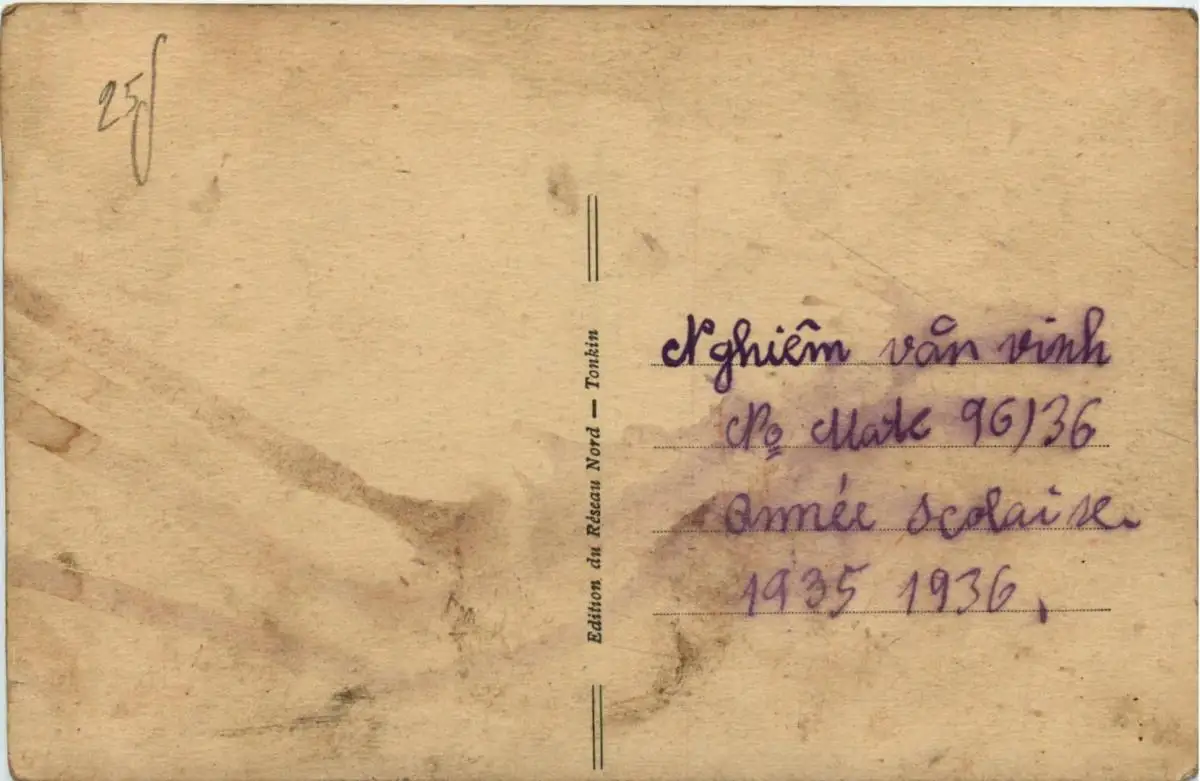 25f
Edition du Réseau Nord — Tonkin
Nghiêm văn vinh
Nọ Mate 96/36
Année scolaire.
1935 1936.